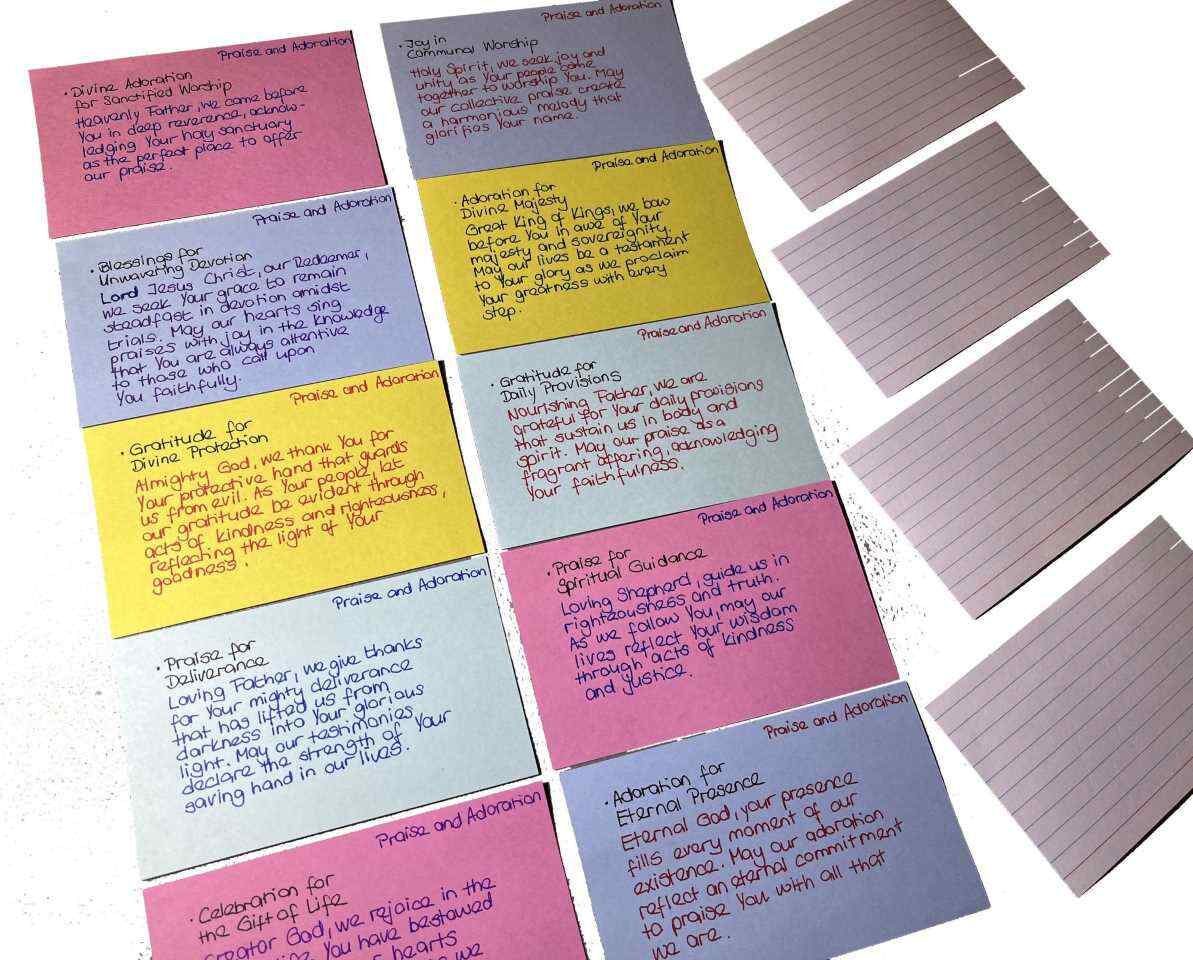 Praise and Adoration
· Divine Adoration
for Sanctified Worship
Heavenly Father, we come before
You in deep reverence, acknow-
ledging Your holy sanctuary
as the perfect place to offer
our praise.
Praise and Adoration
· Blessings for
Unwavering Devotion
Lord Jesus Christ, our Redeemer,
we seek Your grace to remain
steadfast in devotion amidst
trials. May our hearts sing
praises with joy in the knowledge
that You are always attentive
to those who call upon
You faithfully.
Praise and Adoration
· Gratitude for
Divine Protection
Almighty God, we thank You for
Your protective hand that guards
us from evil. As Your people, let
our gratitude be evident through
acts of kindness and righteousness,
reflecting the light of Your
goodness.
Praise and Adoration
· Praise for
Deliverance
Loving Father, we give thanks
for Your mighty deliverance
that has lifted us from
darkness into Your glorious
light. May our testimonies
declare the strength of Your
saving hand in our lives.
Praise and Adoration
· Celebration for
the Gift of Life
Creator God, we rejoice in the
You have bestowed
hearts
we
Praise and Adoration
· Joy in
Communal Worship
Holy Spirit, we seek joy and
unity as Your people come
together to worship You. May
our collective praise create
a harmonious melody that
glorifies Your name.
Praise and Adoration
· Adoration for
Divine Majesty
Great King of Kings, we bow
before You in awe of Your
majesty and sovereignity.
May our lives be a testament
to Your glory as we proclaim
Your greatness with every
step.
Praise and Adoration
· Gratitude for
Daily Provisions
Nourishing Father, we are
grateful for Your daily provisions
that sustain us in body and
spirit. May our praise as a
fragrant offering, acknowledging
Your faithfulness.
Praise and Adoration
· Praise for
Spiritual Guidance
Loving Shepherd, guide us in
righteousness and truth.
As we follow You, may our
lives reflect Your wisdom
through acts of kindness
and justice.
Praise and Adoration
· Adoration for
Eternal Presence
Eternal God, your presence
fills every moment of our
existence. May our adoration
reflect an eternal commitment
to praise You with all that
we are.